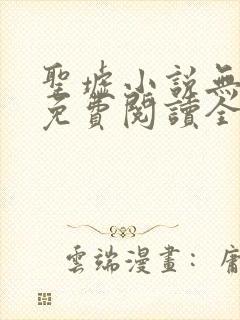 聖墟小説無
免費閱讀全
雲端漫畫：